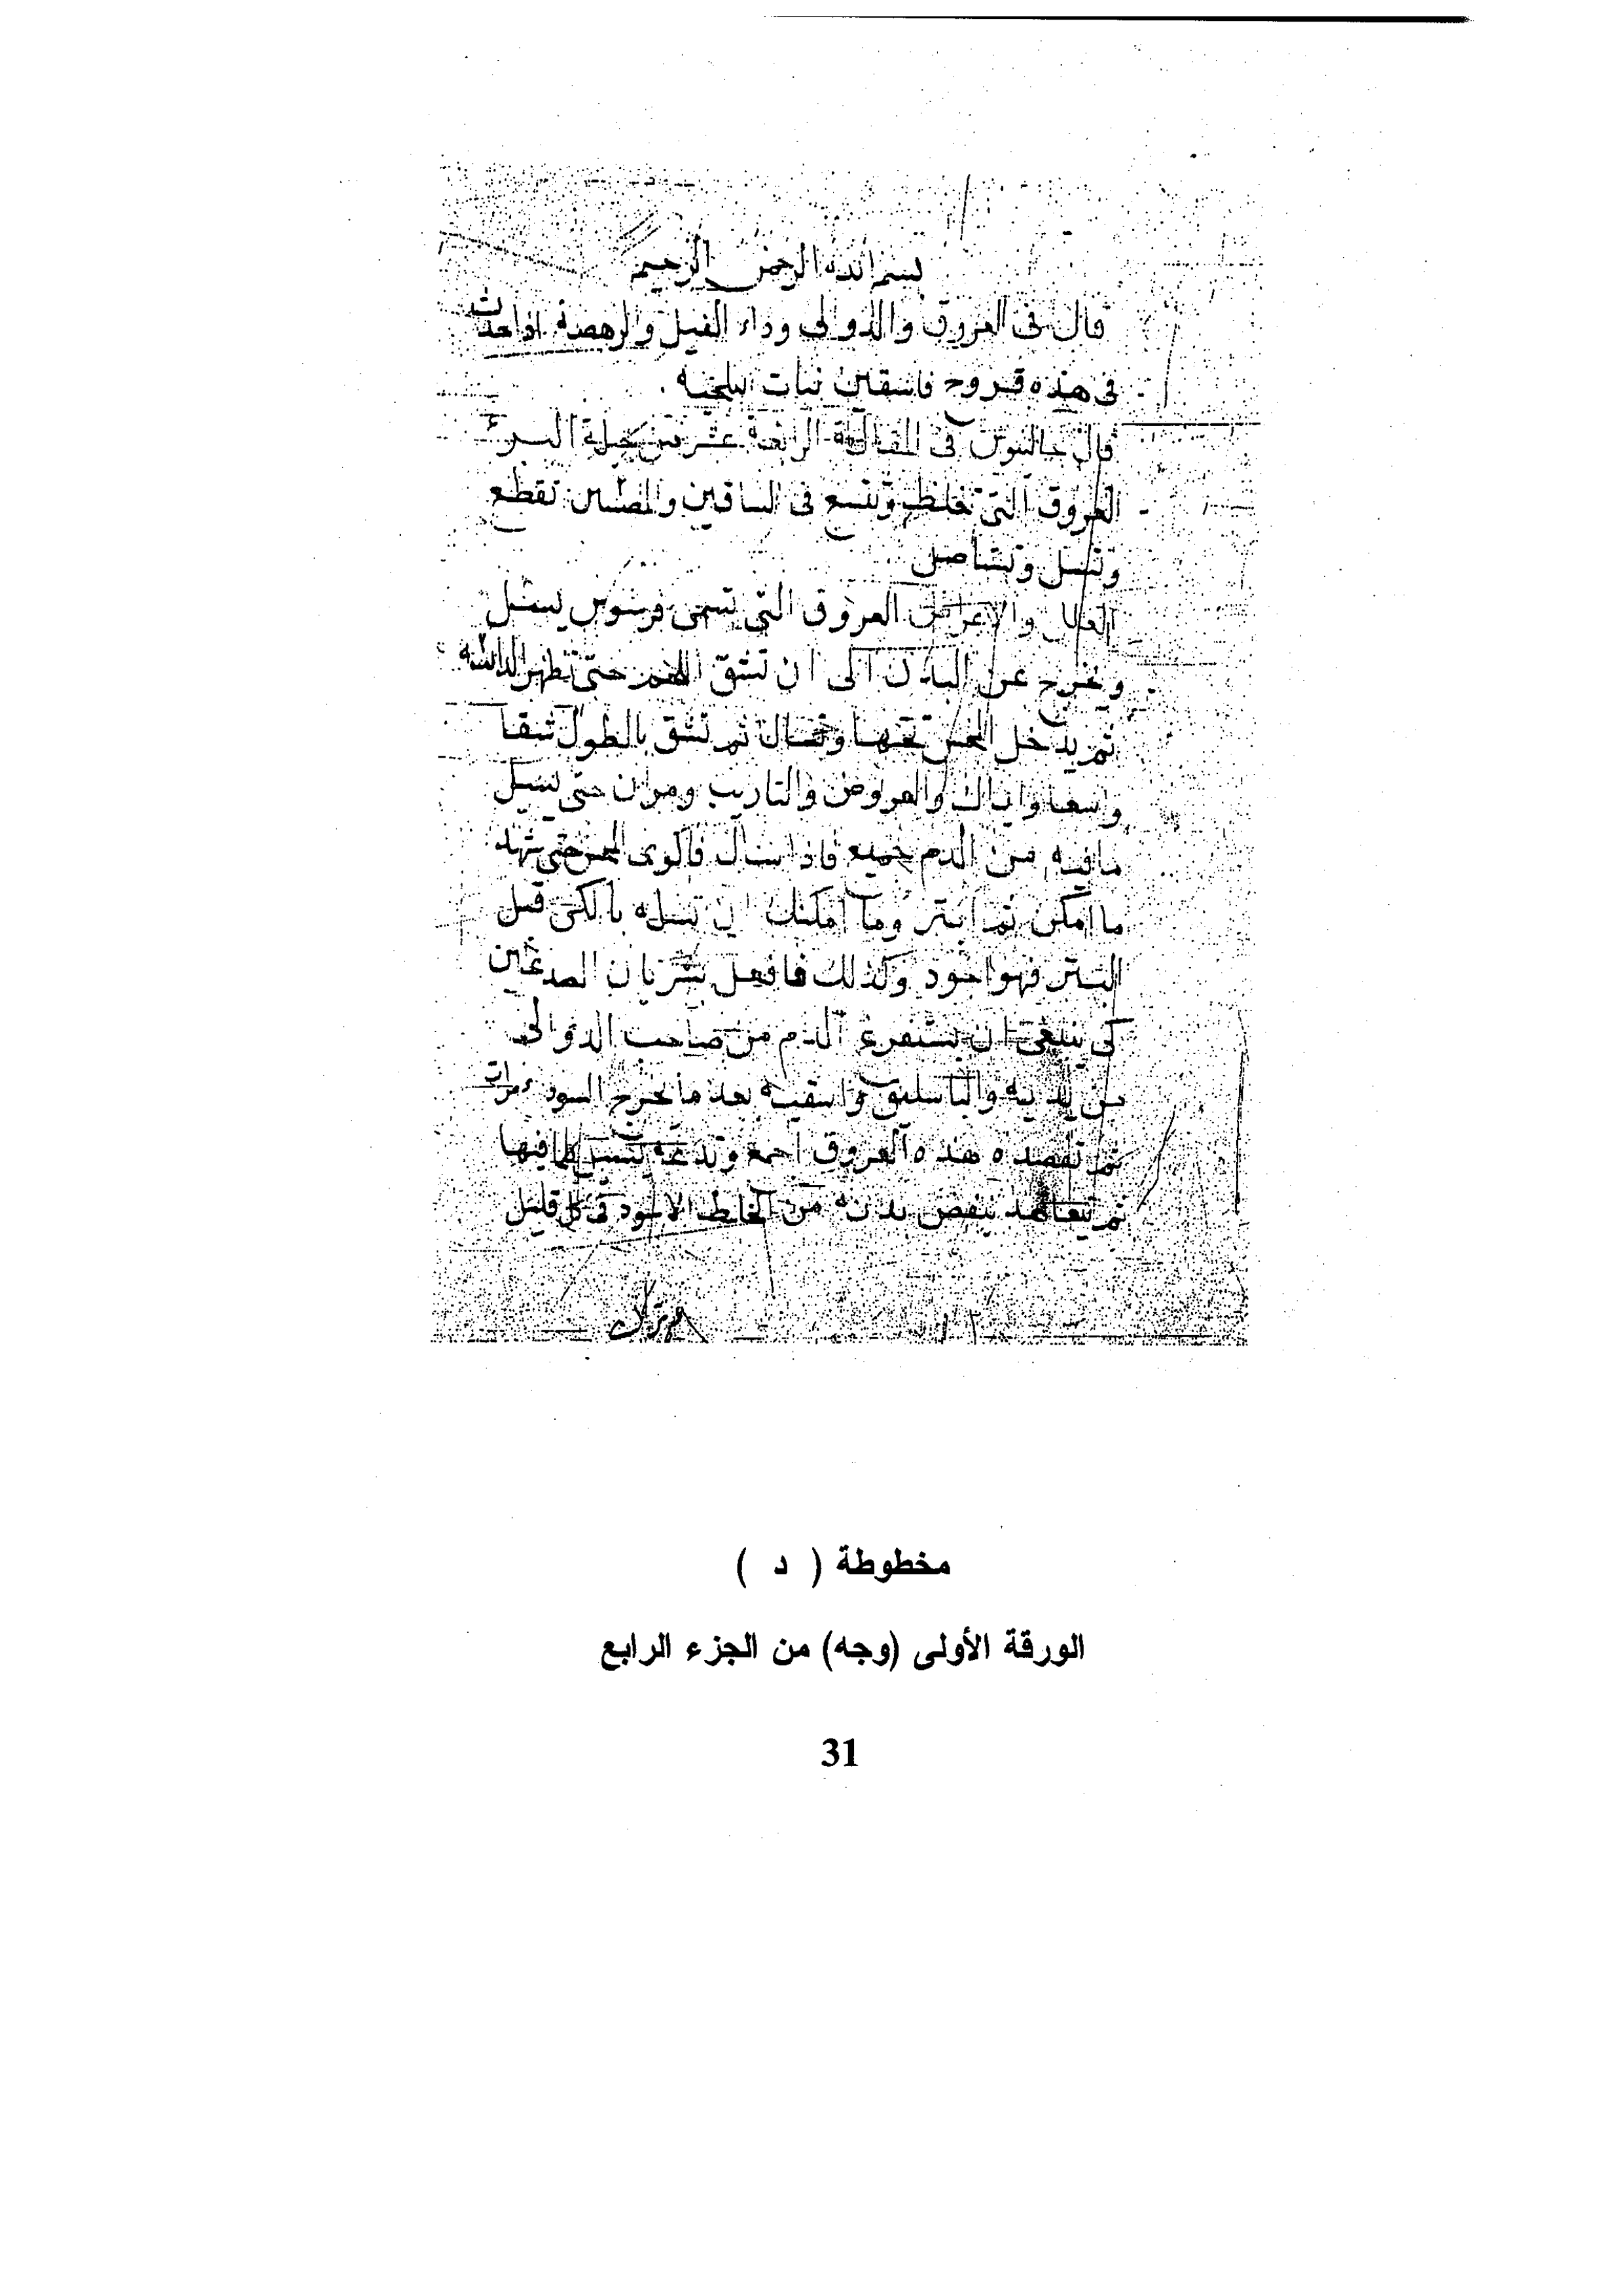 بسم الله الرحمن الرحيم
قال فى العروق والدوالى وداء الفيل والرهصة اذا حدث
فى هذه قروح فاسقين نبات
قال جالينوس فى المقالة الرابعة عشر من حيلة البرء
العروق التى تغلظ وتتسع فى الساقين تقطع
وتسل وتستأصل
العلل والاعراض العروق التى تسمى يسيل
ويخرج عن البدن الى ان تشق حتى تظهر
ثم يدخل المجس تحتها وتشال ثم تشق بالطول شقا
واسعا واياك والعروض والتاريب حتى يسيل
ما فيه من الدم جميع فاذا سال المجس حتى
ما امكن ثم ابتر وما امكنك ان تسله بالكى قبل
البتر فهو اجود وكذلك فافعل بشريان الصدغين
كى ينبغى ان يستفرغ الدم من صاحب الدوالى
من يديه والباسليق واسقيه بعد ما يخرج السوداء مرات
ثم تفصده هذه العروق اجمع وتدعه يسيل كلما فيها
ثم تتعاهد بنفض بدنه من الخلط الاسود فى كل قليل
مخطوطة ( د )
الورقة الأولى (وجه) من الجزء الرابع
31